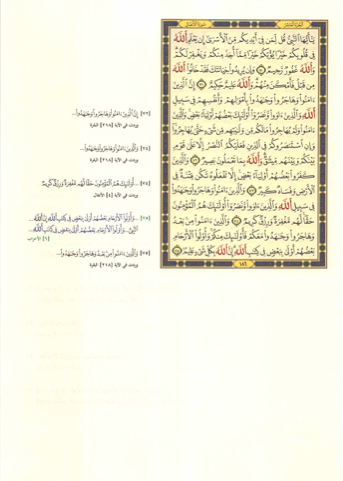 الجزء العاشر
سورة الأنفال
يَٰٓأَيُّهَا ٱلنَّبِيُّ قُل لِّمَن فِيٓ أَيۡدِيكُم مِّنَ ٱلۡأَسۡرَىٰٓ إِن يَعۡلَمِ ٱللَّهُ
فِي قُلُوبِكُمۡ خَيۡرٗا يُؤۡتِكُمۡ خَيۡرٗا مِّمَّآ أُخِذَ مِنكُمۡ وَيَغۡفِرۡ لَكُمۡۚ
وَٱللَّهُ غَفُورٞ رَّحِيمٞ ٧٠ وَإِن يُرِيدُواْ خِيَانَتَكَ فَقَدۡ خَانُواْ ٱللَّهَ
مِن قَبۡلُ فَأَمۡكَنَ مِنۡهُمۡۗ وَٱللَّهُ عَلِيمٌ حَكِيمٌ ٧١ إِنَّ ٱلَّذِينَ
ءَامَنُواْ وَهَاجَرُواْ وَجَٰهَدُواْ بِأَمۡوَٰلِهِمۡ وَأَنفُسِهِمۡ فِي سَبِيلِ
ٱللَّهِ وَٱلَّذِينَ ءَاوَواْ وَّنَصَرُوٓاْ أُوْلَٰٓئِكَ بَعۡضُهُمۡ أَوۡلِيَآءُ بَعۡضٖۚ
وَٱلَّذِينَ ءَامَنُواْ وَلَمۡ يُهَاجِرُواْ مَا لَكُم مِّن وَلَٰيَتِهِم مِّن شَيۡءٍ حَتَّىٰ يُهَاجِرُواْۚ
وَإِنِ ٱسۡتَنصَرُوكُمۡ فِي ٱلدِّينِ فَعَلَيۡكُمُ ٱلنَّصۡرُ إِلَّا عَلَىٰ قَوۡمِۭ
بَيۡنَكُمۡ وَبَيۡنَهُم مِّيثَٰقٞۗ وَٱللَّهُ بِمَا تَعۡمَلُونَ بَصِيرٞ ٧٢ وَٱلَّذِينَ
كَفَرُواْ بَعۡضُهُمۡ أَوۡلِيَآءُ بَعۡضٍۚ إِلَّا تَفۡعَلُوهُ تَكُن فِتۡنَةٞ فِي
ٱلۡأَرۡضِ وَفَسَادٞ كَبِيرٞ ٧٣ وَٱلَّذِينَ ءَامَنُواْ وَهَاجَرُواْ وَجَٰهَدُواْ
فِي سَبِيلِ ٱللَّهِ وَٱلَّذِينَ ءَاوَواْ وَّنَصَرُوٓاْ أُوْلَٰٓئِكَ هُمُ ٱلۡمُؤۡمِنُونَ
حَقّٗاۚ لَّهُم مَّغۡفِرَةٞ وَرِزۡقٞ كَرِيمٞ ٧٤ وَٱلَّذِينَ ءَامَنُواْ مِنۢ بَعۡدُ
وَهَاجَرُواْ وَجَٰهَدُواْ مَعَكُمۡ فَأُوْلَٰٓئِكَ مِنكُمۡۚ وَأُوْلُواْ ٱلۡأَرۡحَامِ
بَعۡضُهُمۡ أَوۡلَىٰ بِبَعۡضٖ فِي كِتَٰبِ ٱللَّهِۚ إِنَّ ٱللَّهَ بِكُلِّ شَيۡءٍ عَلِيمُۢ ٧٥
١٨٦
[٧٢] إِنَّ ٱلَّذِينَ ءَامَنُواْ وَهَاجَرُواْ وَجَٰهَدُواْ...
وردت في الآية [٢١٨] البقرة
[٧٤] وَٱلَّذِينَ ءَامَنُواْ وَهَاجَرُواْ وَجَٰهَدُواْ...
وردت في الآية [٢١٨] البقرة
...أُوْلَٰٓئِكَ هُمُ ٱلۡمُؤۡمِنُونَ حَقّٗا لَّهُم مَّغۡفِرَةٞ وَرِزۡقٞ كَرِيمٞ
وردت في الآية [٤] الأنفال
[٧٥] ...وَأُوْلُواْ ٱلۡأَرۡحَامِ بَعۡضُهُمۡ أَوۡلَىٰ بِبَعۡضٖ فِي كِتَٰبِ ٱللَّهِ إِنَّ ٱللَّهَ
ٱلنَّبِيُّ... وَأُوْلُواْ ٱلۡأَرۡحَامِ بَعۡضُهُمۡ أَوۡلَىٰ بِبَعۡضٖ فِي كِتَٰبِ ٱللَّهِ
[٦] الأحزاب
[٧٥] وَٱلَّذِينَ ءَامَنُواْ مِنۢ بَعۡدُ وَهَاجَرُواْ وَجَٰهَدُواْ...
وردت في الآية [٢١٨] البقرة